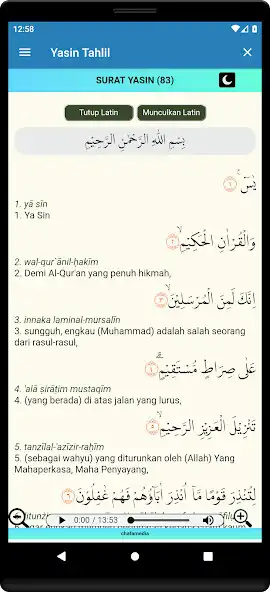 12:58
Yasin Tahlil
SURAT YASIN (83)
Tutup Latin
Munculkan Latin
بِسْمِ اللّٰهِ الرَّحْمٰنِ الرَّحِيْمِ
يٰسۤ ۚ ﴿١﴾
1. yā sīn
1. Ya Sin
وَالْقُرْاٰنِ الْحَكِيْمِۙ ﴿٢﴾
2. wal-qur`ānil-ḥakīm
2. Demi Al-Qur'an yang penuh hikmah,
اِنَّكَ لَمِنَ الْمُرْسَلِيْنَۙ ﴿٣﴾
3. innaka laminal-mursalīn
3. sungguh, engkau (Muhammad) adalah salah seorang
dari rasul-rasul,
عَلٰى صِرَاطٍ مُّسْتَقِيْمٍۗ ﴿٤﴾
4. 'alā ṣirāṭim mustaqīm
4. (yang berada) di atas jalan yang lurus,
تَنْزِيْلَ الْعَزِيْزِ الرَّحِيْمِۙ ﴿٥﴾
5. tanzīlal-'azīzir-raḥīm
5. (sebagai wahyu) yang diturunkan oleh (Allah) Yang
Mahaperkasa, Maha Penyayang,
لِتُنْذِرَ قَوْمًا مَّآ اُنْذِرَ اٰبَاۤؤُهُمْ فَهُمْ غٰفِلُوْنَ ﴿٦﴾
0:00 / 13:53
chafamedia